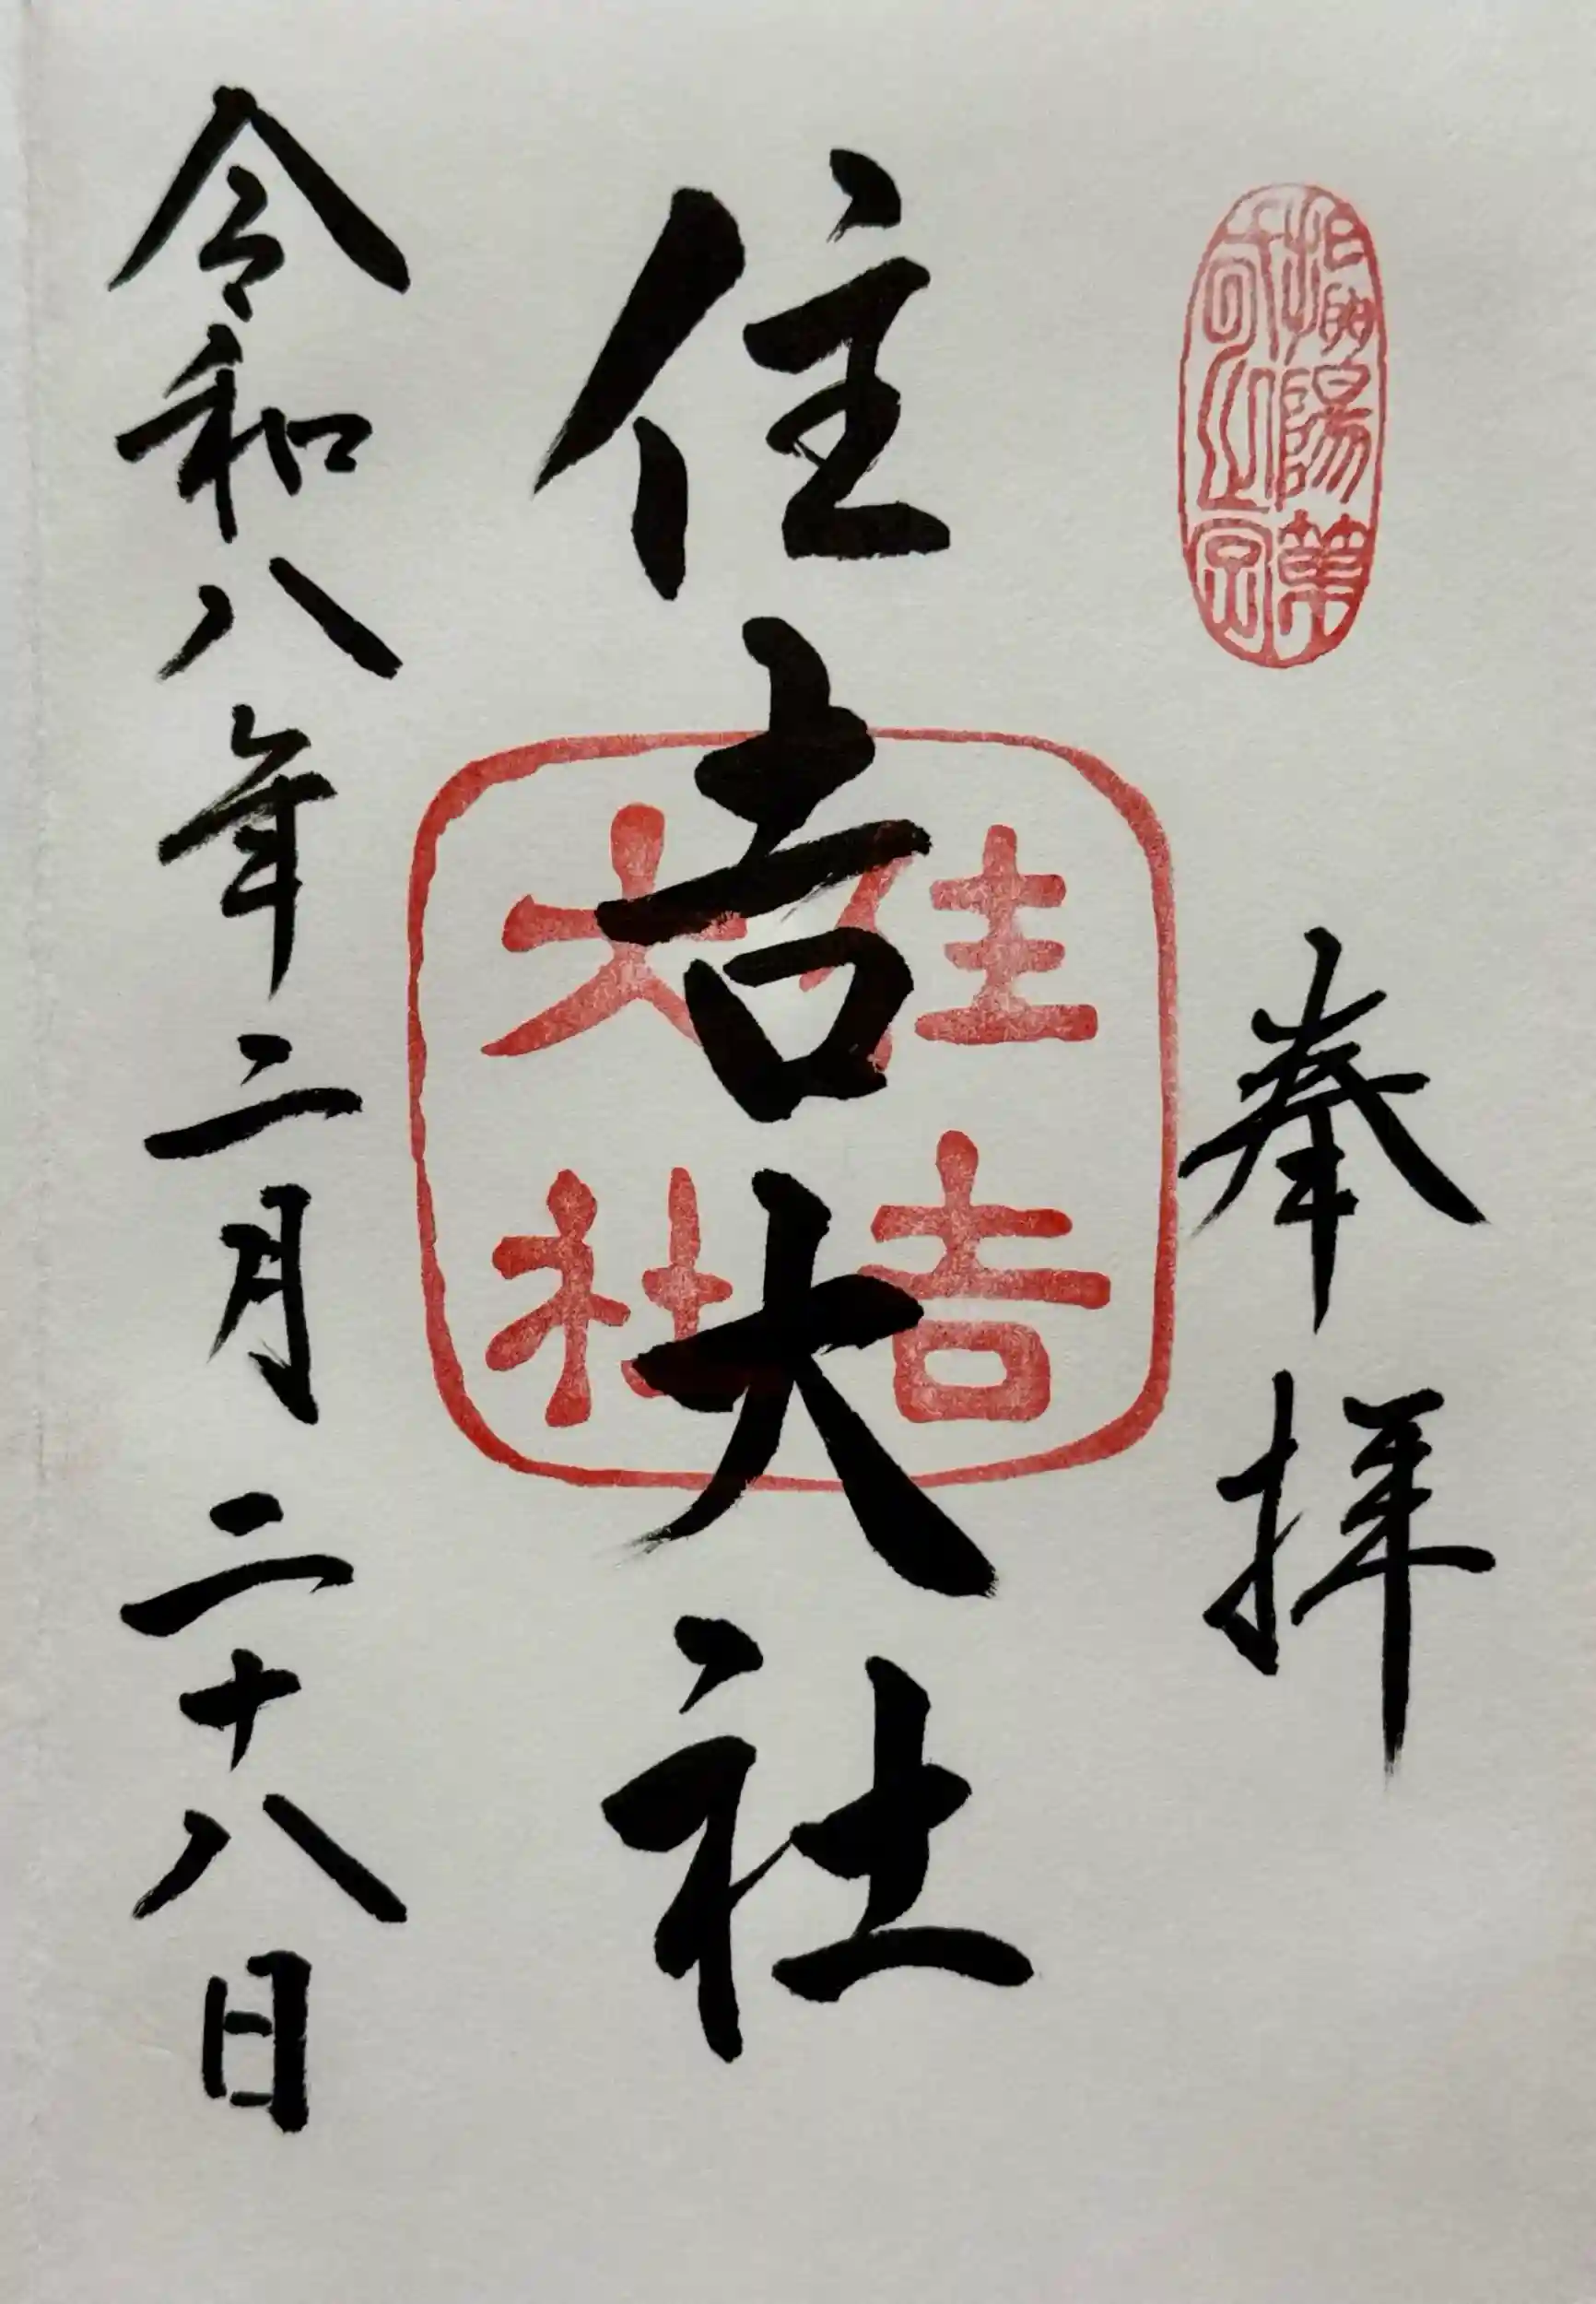 攝陽第
之宮
奉拝
住吉大社
住吉
大社
令和八年二月二十八日